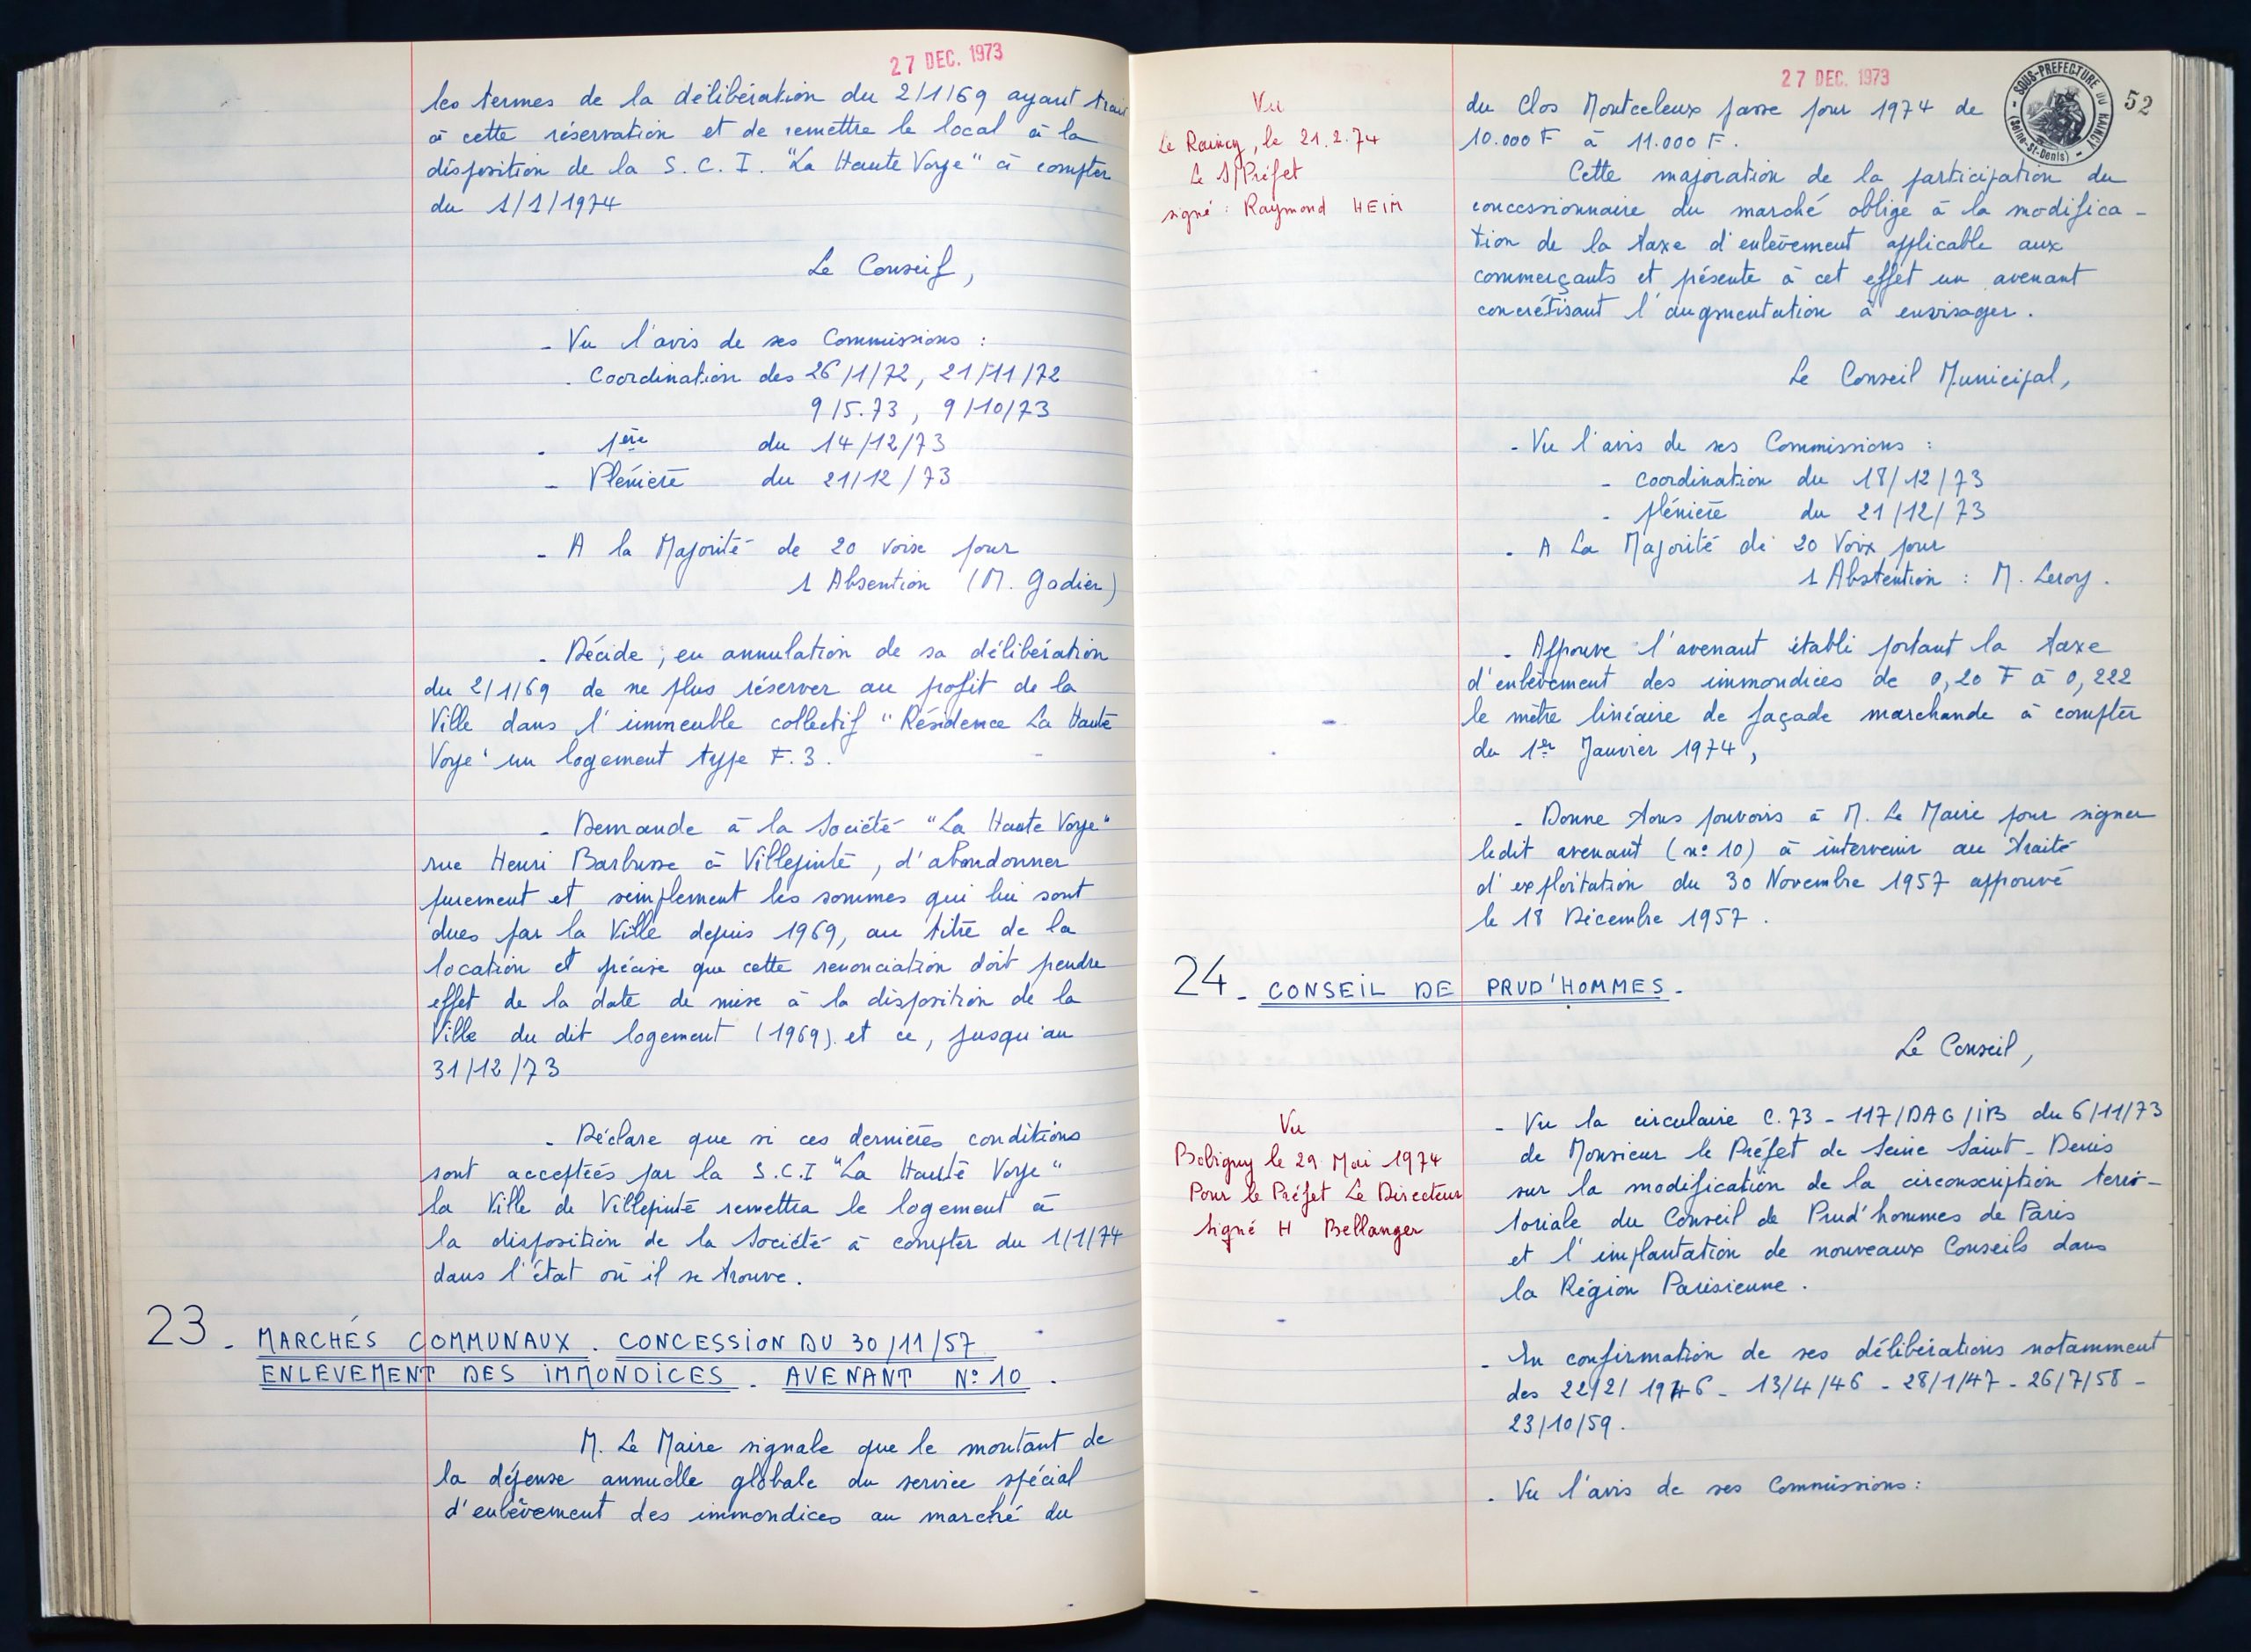 27 DEC. 1973
les termes de la délibération du 2/1/69 ayant trait
à cette réservation et de remettre le local à la
disposition de la S. C. I. "La Haute Voye" à compter
du 1/1/1974
Le Conseil,
- Vu l'avis de ses Commissions :
. Coordination des 26/1/72, 21/11/72
9/5.73, 9/10/73
. 1ère du 14/12/73
- Plénière du 21/12/73
- A la Majorité de 20 voise pour
1 Absention (M. Godier)
- Décide, en annulation de sa délibération
du 2/1/69 de ne plus réserver au profit de la
Ville dans l'immeuble collectif "Résidence La Haute
Voye" un logement type F.3.
- Demande à la Société "La Haute Voye"
rue Henri Barbusse à Villepinte, d'abandonner
purement et seimplement les sommes qui lui sont
dues par la Ville depuis 1969, au titre de la
location et précise que cette renonciation doit pendre
effet de la date de mise à la disposition de la
Ville du dit logement (1969) et ce, jusqu'au
31/12/73
- Déclare que si ces dernières conditions
sont acceptées par la S.C.I "La Haute Voye"
la Ville de Villepinte remettra le logement à
la disposition de la Société à compter du 1/1/74
dans l'état où il se trouve.
23 - MARCHÉS COMMUNAUX. CONCESSION DU 30/11/57
ENLEVEMENT DES IMMONDICES. AVENANT N° 10.
M. Le Maire signale que le montant de
la dépense annuelle globale du service spécial
d'enlèvement des immondices au marché du
27 DEC. 1973
SOUS-PREFECTURE DU RAINCY
(Seine-St-Denis)
52
Vu
Le Raincy, le 21.2.74
Le S/Préfet
signé : Raymond HEIM
du Clos Montceleux passe pour 1974 de
10.000 F à 11.000 F.
Cette majoration de la participation du
concessionnaire du marché oblige à la modifica-
tion de la taxe d'enlèvement applicable aux
commerçants et présente à cet effet un avenant
concrétisant l'augmentation à envisager.
Le Conseil Municipal,
- Vu l'avis de ses Commissions :
- coordination du 18/12/73
- plénière du 21/12/73
- A La Majorité de 20 Voix pour
1 Abstention : M. Leroy.
- Approuve l'avenant établi portant la taxe
d'enlèvement des immondices de 0,20 F à 0,222
le mètre linéaire de façade marchande à compter
du 1er Janvier 1974,
- Donne tous pouvoirs à M. Le Maire pour signer
ledit avenant (n° 10) à intervenir au traité
d'exploitation du 30 Novembre 1957 approuvé
le 18 Décembre 1957.
24 - CONSEIL DE PRUD'HOMMES.
Le Conseil,
Vu
Bobigny le 29 Mai 1974
Pour le Préfet Le Directeur
Signé H Bellanger
- Vu la circulaire C.73 - 117/DAG/iB du 6/11/73
de Monsieur le Préfet de Seine Saint-Denis
sur la modification de la circonscription terri-
toriale du Conseil de Prud'hommes de Paris
et l'implantation de nouveaux Conseils dans
la Région Parisienne.
- En confirmation de ses délibérations notamment
des 22/2/1946 - 13/4/46 - 28/1/47 - 26/7/58 -
23/10/59.
- Vu l'avis de ses Commissions :